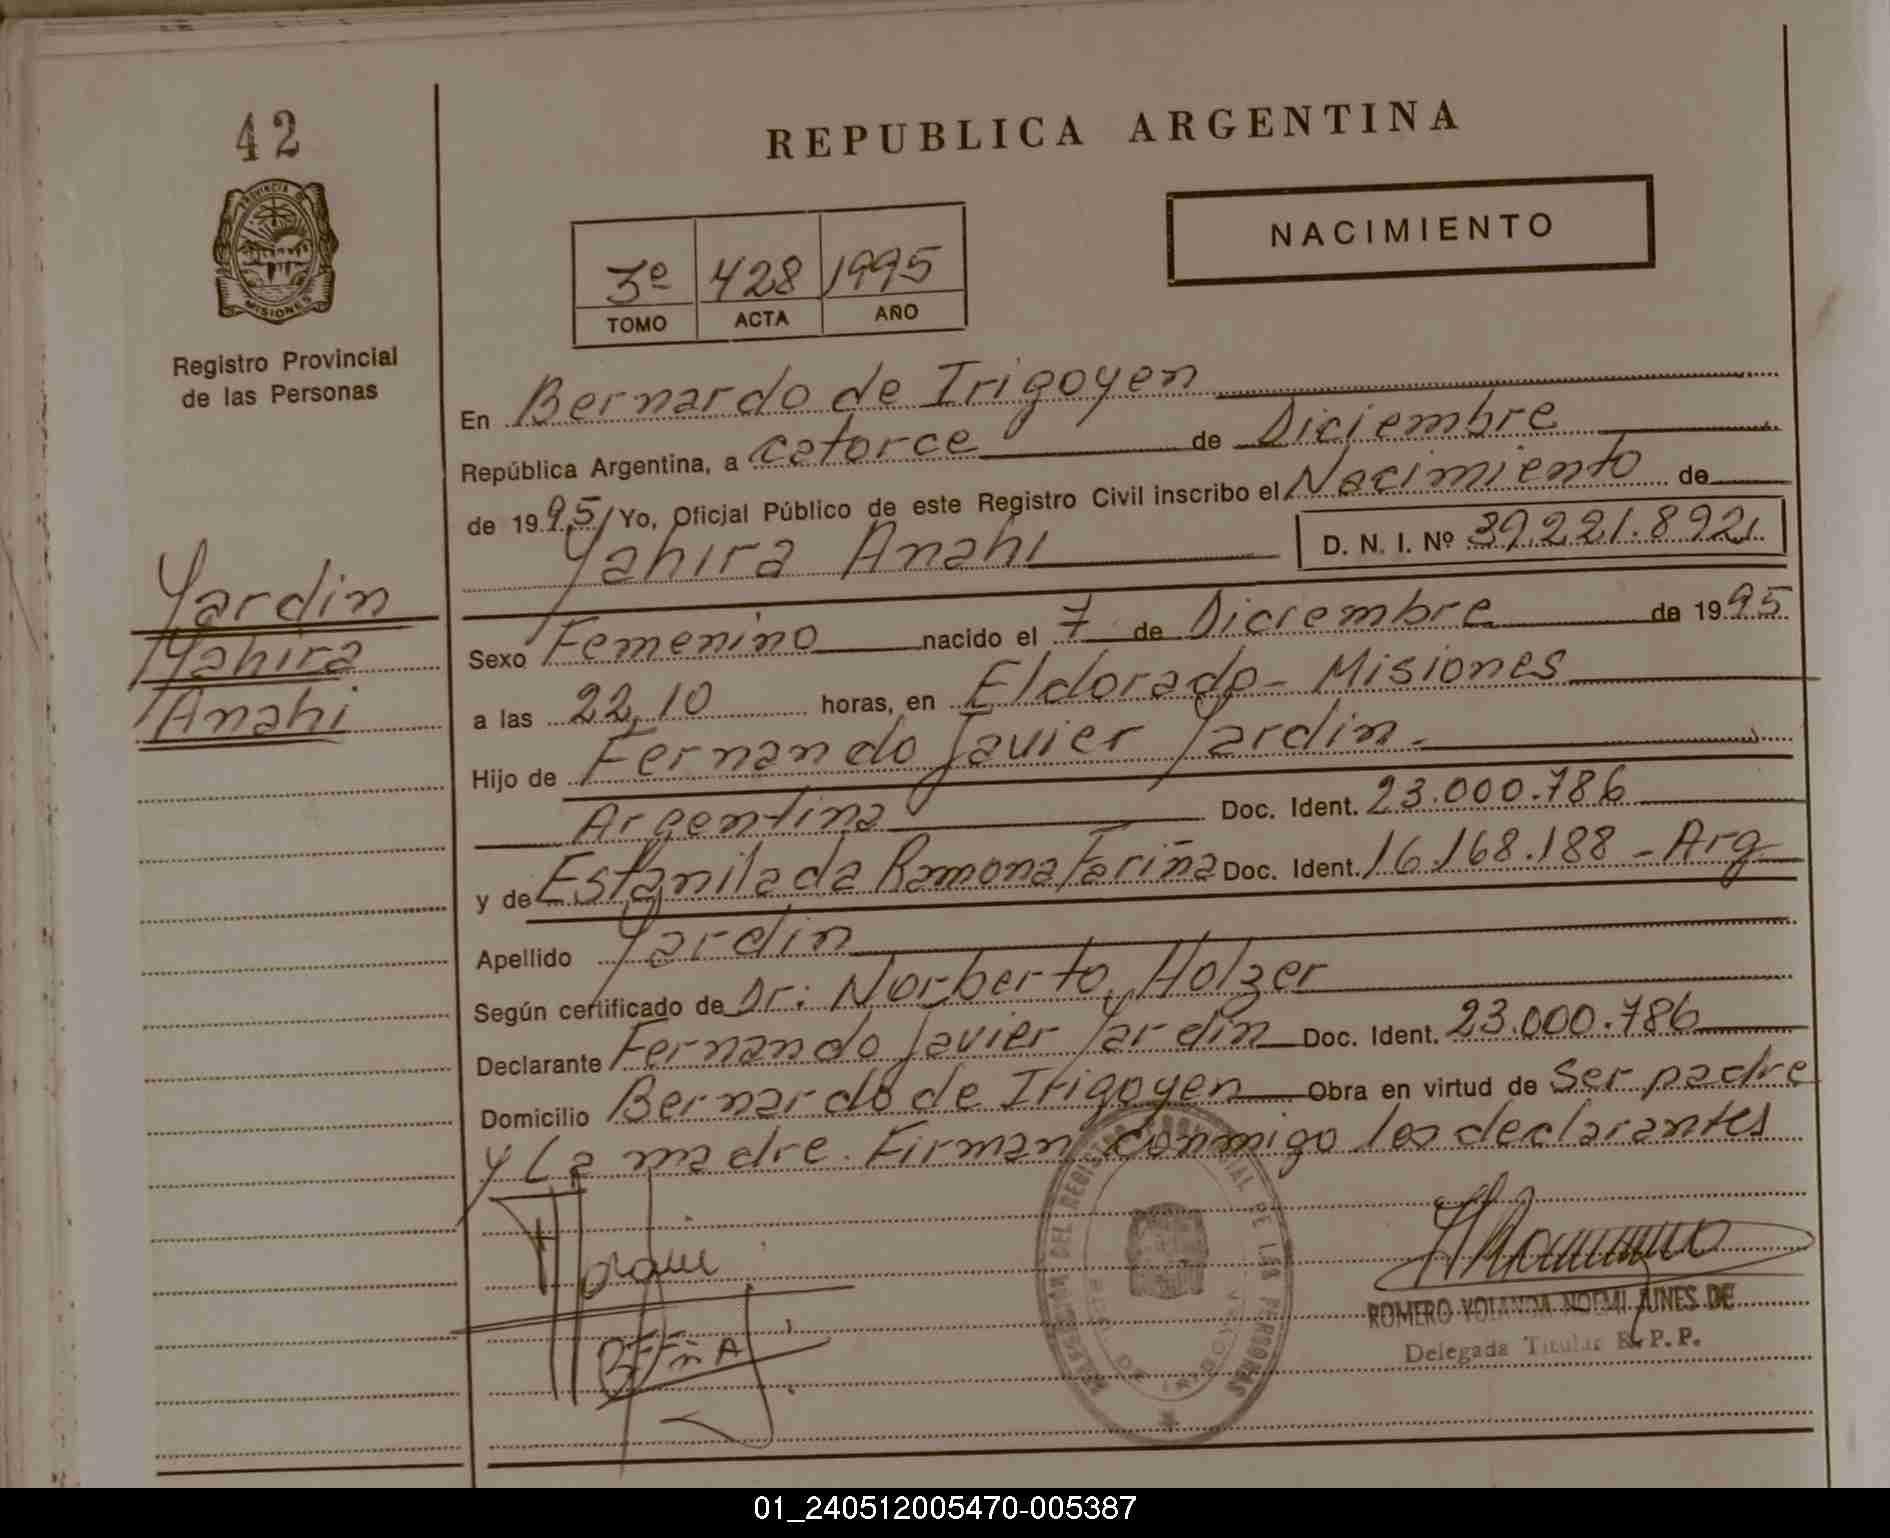 42
REPUBLICA ARGENTINA
PROVINCIA DE
MISIONES
NACIMIENTO
3º 428 1995
TOMO ACTA AÑO
Registro Provincial
de las Personas
En Bernardo de Irigoyen
República Argentina, a catorce de Diciembre
de 1995, Yo, Oficial Público de este Registro Civil inscribo el Nacimiento de
Yahira Anahi D. N. I. Nº 39.221.892
Yardin
Yahira
Anahi
Sexo Femenino nacido el 7 de Diciembre de 1995
a las 22,10 horas, en Eldorado - Misiones
Hijo de Fernando Javier Yardin.
Argentina Doc. Ident. 23.000.786
y de Estanilada Ramona Fariña Doc. Ident. 16.168.188 - Arg
Apellido Yardin
Según certificado de Dr: Norberto Holzer
Declarante Fernando Javier Yardin Doc. Ident. 23.000.786
Domicilio Bernardo de Irigoyen Obra en virtud de Ser padre
y La madre. Firman conmigo los declarantes
DELEGACION DEL REGISTRO PROVINCIAL DE LAS PERSONAS
DE IRIGOYEN
ROMERO YOLANDA NOEMI JUNES DE
Delegada Titular R. P. P.
01_240512005470-005387